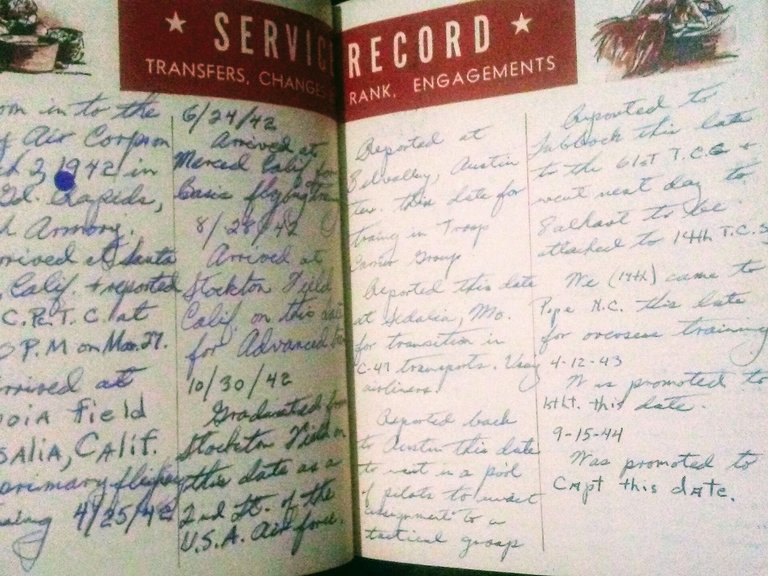 SERVICE RECORD
TRANSFERS, CHANGES RANK, ENGAGEMENTS
in to the
Air Corps on
2, 1942 in
Rapids,
Armory.
rrived at Santa
, Calif. + reported
C.R.T.C. at
P.M on Mar. 27.
rrived at
oia Field
salia, Calif.
primary flight
ning 4/25/42
6/24/42
Arrived at
Merced Calif for
Basic flying train
8/28/42
Arrived at
Stockton Field
Calif. on this
for Advanced
10/30/42
Graduated from
Stockton Field on
this date as a
2nd Lt. of the
U.S.A. Air force.
Reported at
Austin
Tex. this date for
traing in Troop
Carrier Group
Reported this date
at Sedalia, Mo.
for transition in
C-47 transports.
airliners.
Reported back
to Austin this date
to wait in a pool
of pilots to await
assignment to a
tactical group
Reported to
Lubbock this date
to the 61st T.C.G +
went next day to
to be
attached to 14th T.C.S
We (14th) came to
Pope N.C. this date
for overseas training
4-12-43
Was promoted to
1st Lt. this date.
9-15-44
Was promoted to
Capt this date.